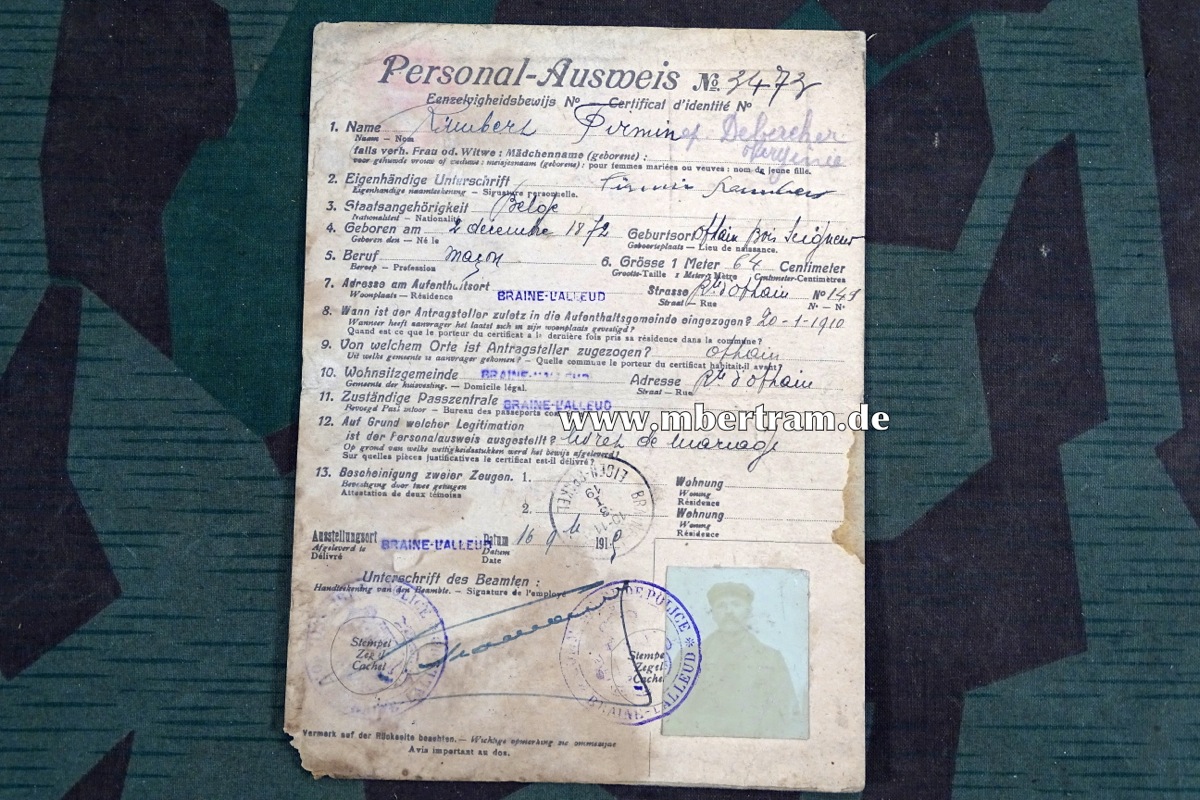 Personal-Ausweis No. 3473
Eenzelvigheidsbewijs No — Certificat d'identité No
1. Name Firmin ep Debecker
Naam — Nom
falls verh. Frau od. Witwe: Mädchenname (geborene):
voor gehuwde vrouw of weduwe: meisjesnaam (geborene): pour femmes mariées ou veuves: nom de jeune fille.
2. Eigenhändige Unterschrift Firmin
Eigenhandige naamteekening — Signature personnelle.
3. Staatsangehörigkeit Belge
Nationaliteit — Nationalité
4. Geboren am 2 decembre 1872 Geburtsort Ophain Bois Seigneur
Geboren den — Né le Geboorteplaats — Lieu de naissance.
5. Beruf maçon 6. Grösse 1 Meter 64 Centimeter
Beroep — Profession Grootte-Taille 1 Meter/1 Mètre Centimeter-Centimètres
7. Adresse am Aufenthaltsort BRAINE-L'ALLEUD Strasse Rte d'Ophain No 149
Woonplaats — Résidence Straat — Rue No — No
8. Wann ist der Antragsteller zuletz in die Aufenthaltsgemeinde eingezogen? 20-1-1910
Wanneer heeft aanvrager het laatst sich in zijn woonplaats gevestigd?
Quand est ce que le porteur du certificat a le dernière fois pris sa résidence dans la commune?
9. Von welchem Orte ist Antragsteller zugezogen? Ophain
Uit welke gemeente is aanvrager gekomen? — Quelle commune le porteur du certificat habitait-il avant?
10. Wohnsitzgemeinde BRAINE-L'ALLEUD Adresse Rte d'Ophain
Gemeente der huisvesting. — Domicile légal. Straat — Rue
11. Zuständige Passzentrale BRAINE-L'ALLEUD
Bevoegd Pas — Bureau des passeports
www.mbertram.de
12. Auf Grund welcher Legitimation
ist der Personalausweis ausgestellt? de mariage
Op grond van welke wettigheidsstukken werd het bewijs afgeleverd?
Sur quelles pièces justificatives le certificat est-il délivré?
13. Bescheinigung zweier Zeugen. 1. Wohnung
Bevestiging door twee getuigen Woning
Attestation de deux témoins Résidence
2. Wohnung
Woning
Résidence
Ausstellungsort BRAINE-L'ALLEUD Datum 16 9 191
Afgeleverd te Datum
Délivré Date
Unterschrift des Beamten:
Handteekening van den Beambte. — Signature de l'employé
POLICE
DE POLICE
BRAINE-L'ALLEUD
Stempel
Zegel
Cachet
Stempel
Zegel
Cachet
Vermerk auf der Rückseite beachten. — Wichtige opmerking zie ommezijde
Avis important au dos.